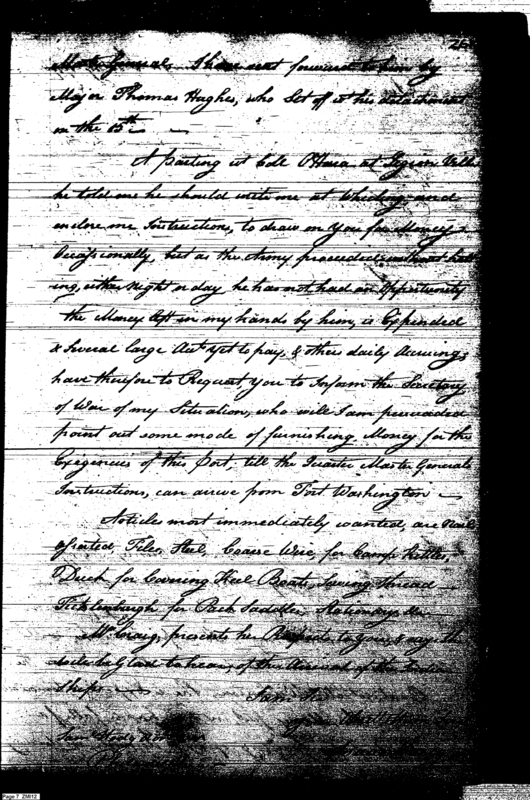 Master General, I have sent forward to him by
Major Thomas Hughes, who Set off wt his detachment
on the 15th
A parting wt Cole OHara at Legion Ville
he told me he should write me at Wheeling and
enclose me Instructions, to draw on you for Money
Occasionally, but as the Army proceeded without halt
ing, either Night or day he has not had an Oppertunity
the Money left in my hands by him, is Expended
& Several large Acts yet to pay, & others daily Accruing,
have therefore to Request you to Inform the Secretary
of War of my Situation, who will I am persuaded
point out some mode of furnishing Money, for the
Exigencies of this Post, till the Quarter Master Generals
Instructions, can arrive from Fort Washington
Articles most immediately wanted, are Nails
assorted Files, Steel, Coarse Wire, for Camp Kettles,
Duck for Covering Keel Boats, Sewing Thread
Ticklenburgh for Pack Saddles, Stationary &c
Mrs Craig, presents her Respects to you, & says she
will be glad to hear, of the Arrival of the
Ships
I am Sir
your
Page 7 ZMI12